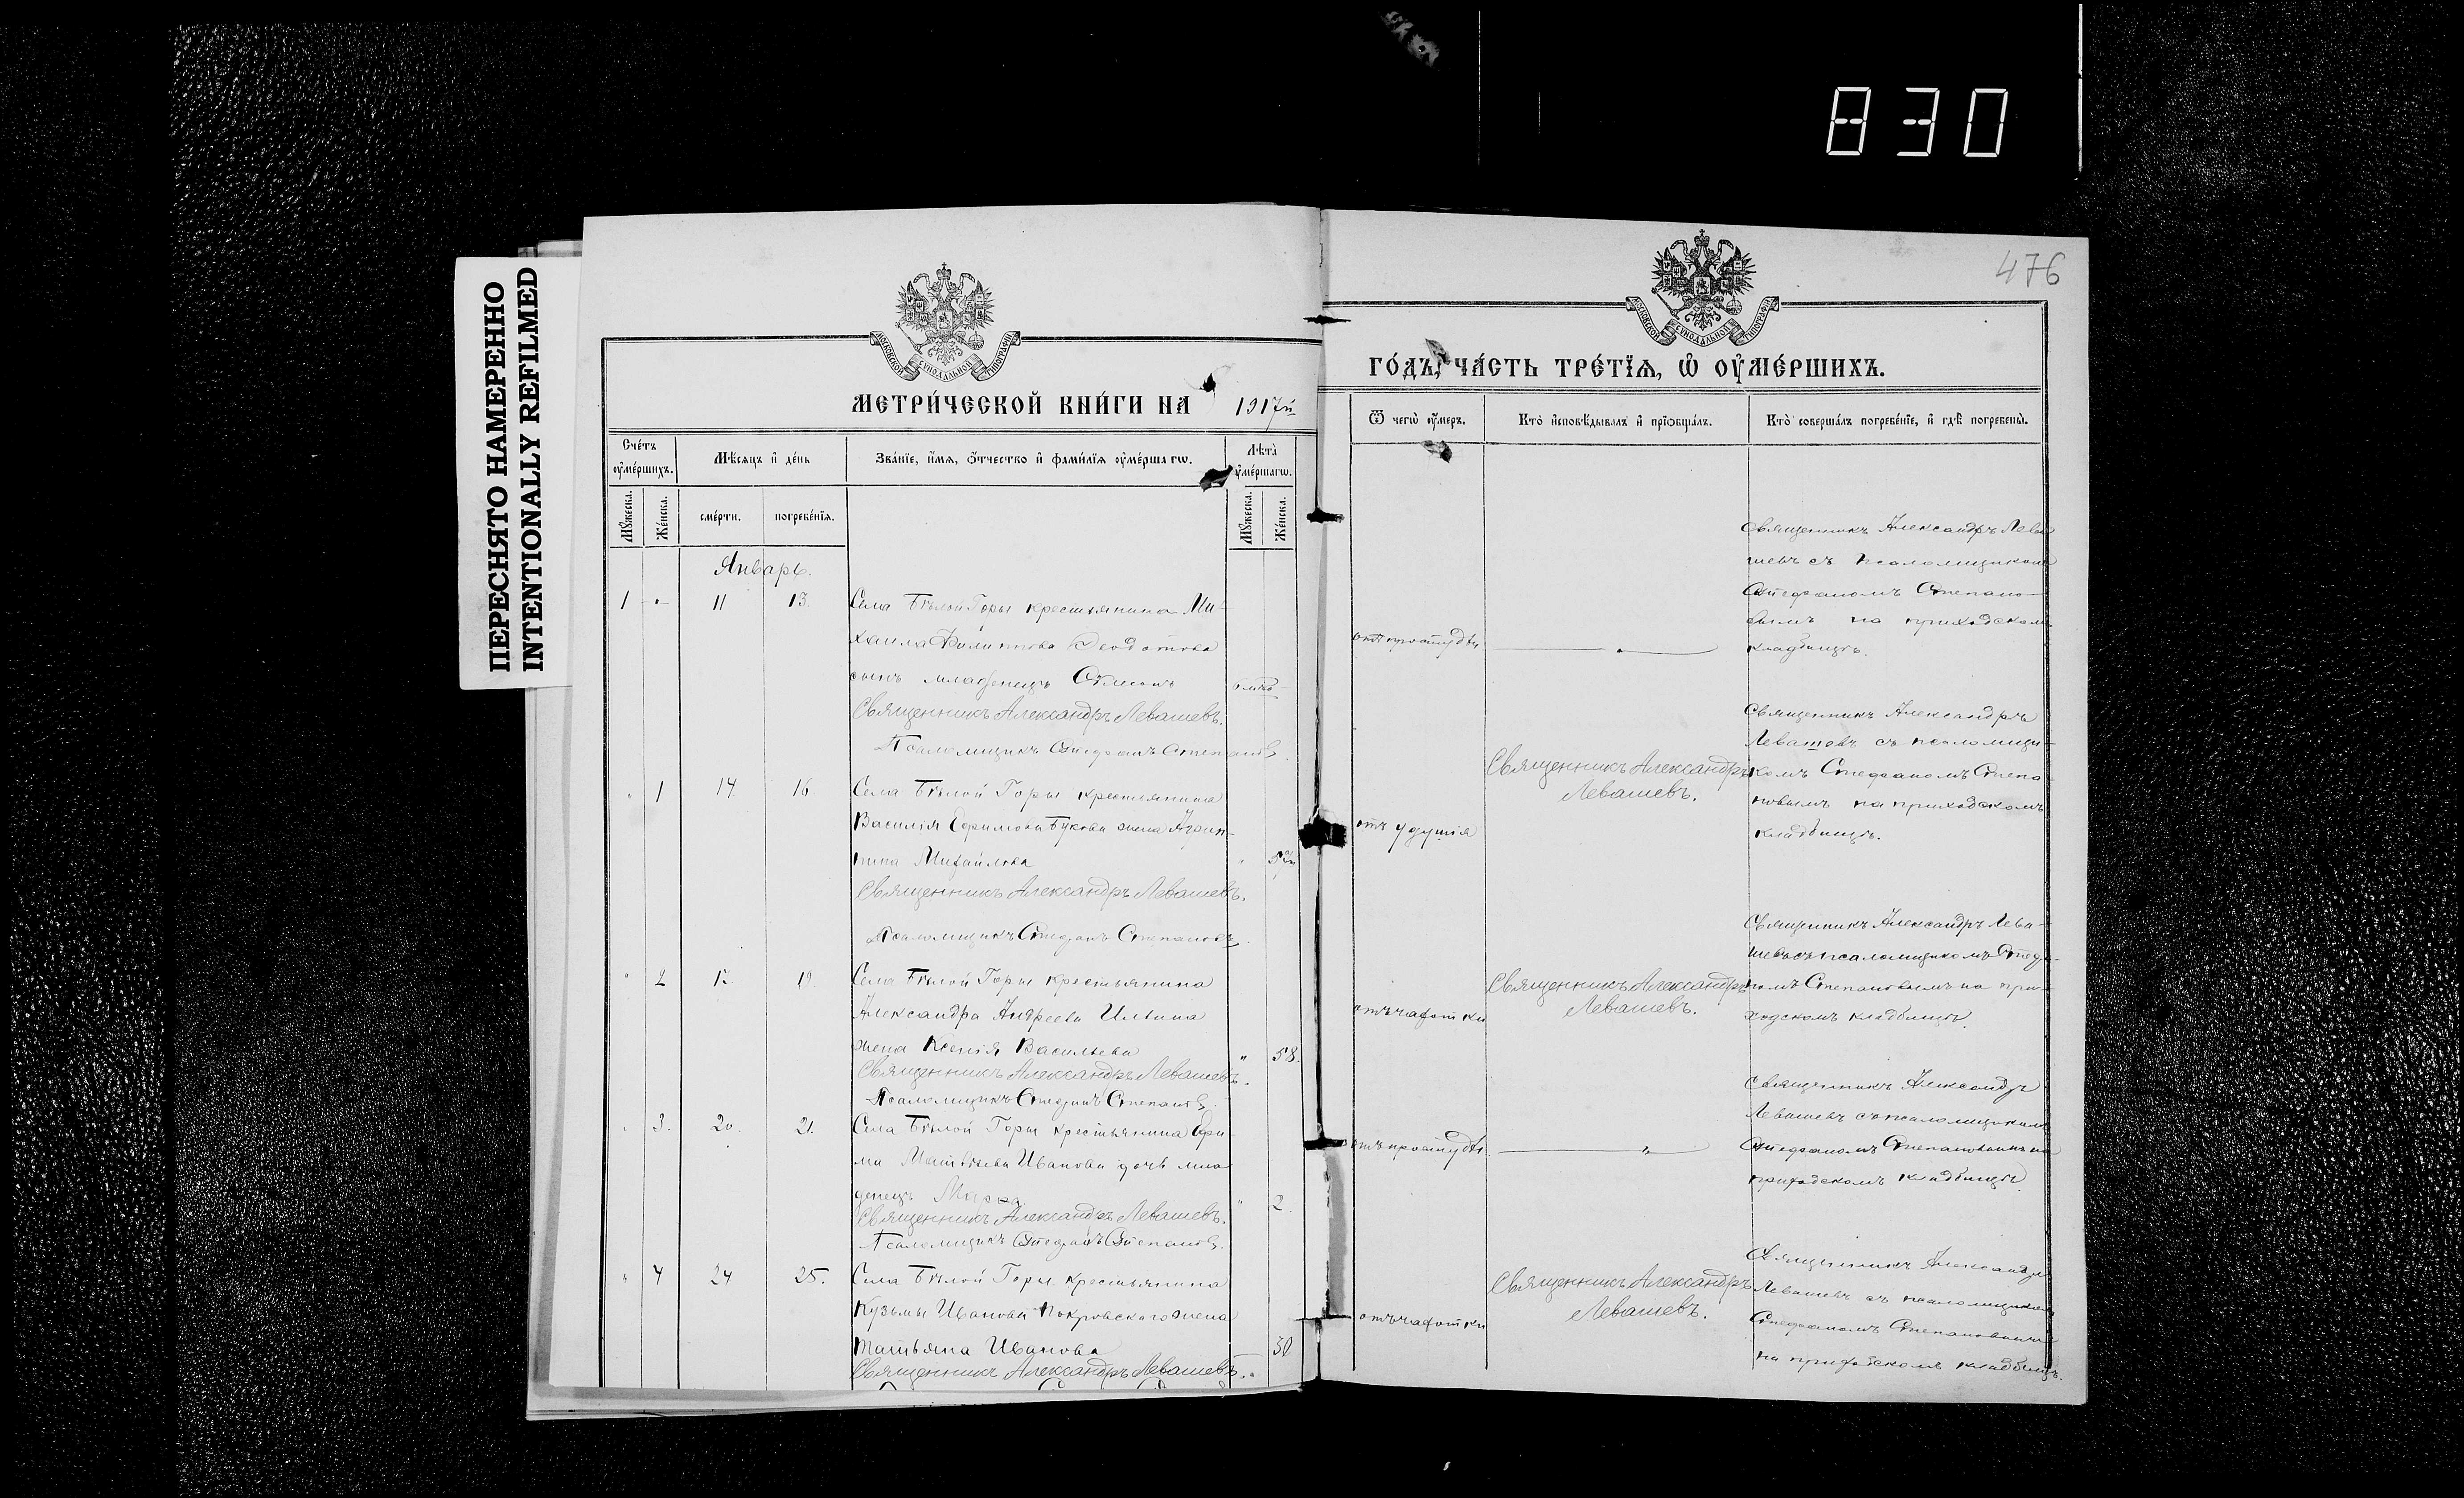 830
ПЕРЕСНЯТО НАМЕРЕННО
INTENTIONALLY REFILMED
476
МОСКОВСКОЙ СѴНОДАЛЬНОЙ ТИПОГРАФІИ
МОСКОВСКОЙ СѴНОДАЛЬНОЙ ТИПОГРАФІИ
МЕТРИ́ЧЕСКОЙ КНИ́ГИ НА 1917й
ГО́ДЪ, ЧА́СТЬ ТРЕ́ТЇѦ, Ѡ҆ ОУ҆МЕ́РШИХЪ.
Сче́тъ
оу҆ме́ршихъ.
Мѣ́сѧцъ и҆ де́нь
Зва́нїе, и҆́мѧ, ѻ҆́тчество и҆ фами́лїѧ оу҆ме́ршагѡ.
Лѣ́та
оу҆ме́ршагѡ.
Ѿ чегѡ̀ оу҆́меръ.
Кто̀ и҆сповѣ́дывалъ и҆ прїѻбща́лъ.
Кто̀ соверша́лъ погребе́нїе, и҆ гдѣ̀ погребены̀.
Мꙋ́жеска.
Же́нска.
сме́рти.
погребе́нїѧ.
Мꙋ́жеска.
Же́нска.
Январь.
1 " 11 13.
Села Бѣлой Горы крестьянина Ми-
хаила Филиппова Ѳеодотова
сынъ младенецъ Симеонъ
Священникъ Александръ Левашевъ.
Псаломщикъ Стефанъ Степановъ
отъ простуды
Священникъ Александръ Лева
шевъ съ псаломщикомъ
Стефаномъ Степано-
вымъ на приходскомъ
кладбищѣ.
" 1 14 16
Села Бѣлой Горы крестьянина
Василія Ефимова Букова жена Агрип-
пина Михайлова
Священникъ Александръ Левашевъ.
Псаломщикъ Стефанъ Степановъ.
отъ удушія
Священникъ Александръ
Левашевъ.
Священникъ Александръ
Левашевъ съ псаломщи-
комъ Стефаномъ Степа-
новымъ на приходскомъ
кладбищѣ.
" 2 19
Села Бѣлой Горы крестьянина
Александра Андреева Ильина
жена Ксенія Васильева
" 58.
Священникъ Александръ Левашевъ.
Псаломщикъ Стефанъ Степановъ
отъ чахотки
Священникъ Александръ
Левашевъ.
Священникъ Александръ Лева-
шевъ съ псаломщикомъ Стефа-
номъ Степановымъ на при-
ходскомъ кладбищѣ.
" 3. 20. 21.
Села Бѣлой Горы крестьянина Ефи-
ма Матвѣева Иванова дочь мла
денецъ
" 2.
Священникъ Александръ Левашевъ.
Псаломщикъ Стефанъ Степановъ.
отъ простуды
"
Священникъ Александръ
Левашевъ съ псаломщикомъ
Стефаномъ Степановымъ на
приходскомъ кладбищѣ.
" 4 24 25.
Села Бѣлой Горы крестьянина
Кузьмы Иванова Покровскаго жена
Татьяна Иванова
50
Священникъ Александръ Левашевъ.
отъ чахотки
Священникъ Александръ
Левашевъ.
Священникъ Александръ
Левашевъ съ псаломщикомъ
Стефаномъ Степановымъ
на приходскомъ кладбищѣ.